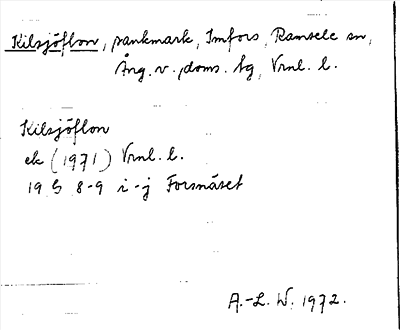 Kilsjöflon, sankmark, Imfors, Ramsele sn,
Ång. v. doms. bg, Vrnl. l.
Kilsjöflon
ek (1971) Vrnl. l.
19 G 8-9 i-j Forsnäset
A.-L. W. 1972.